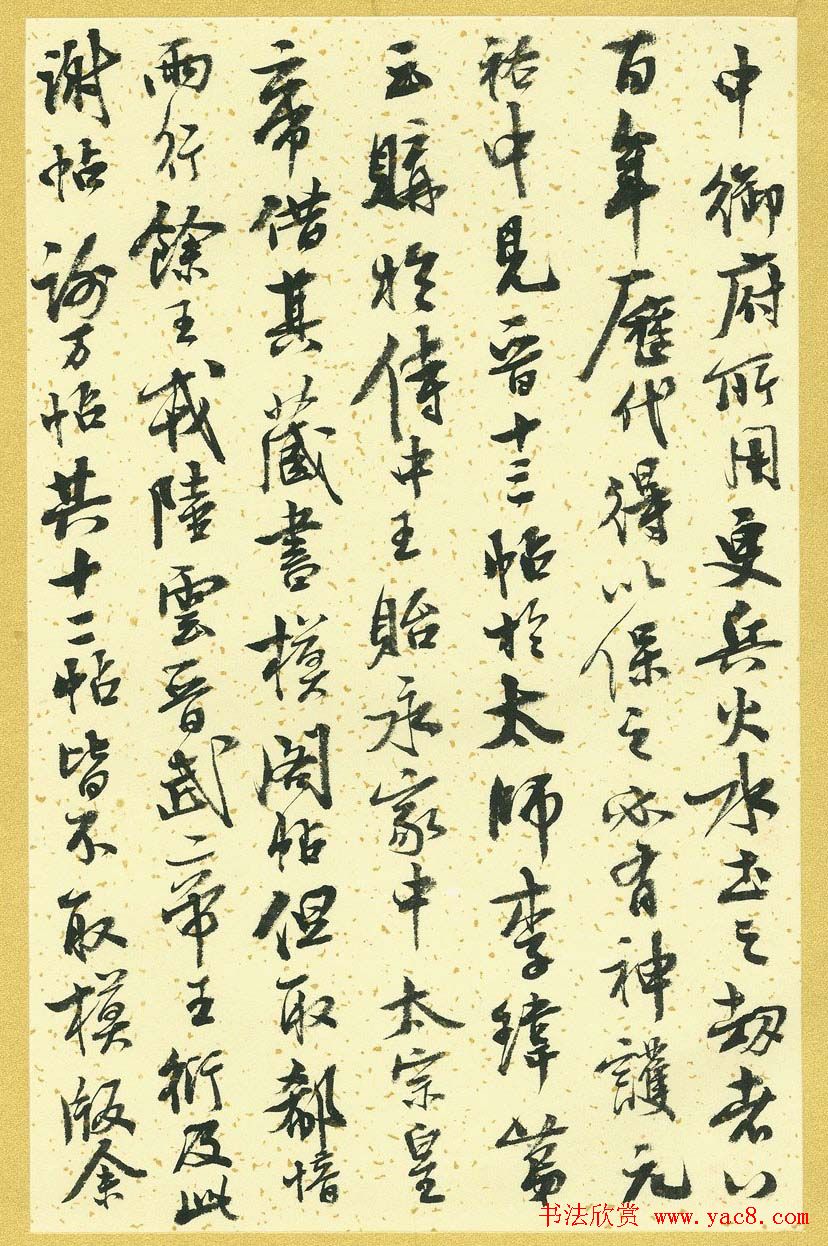 中御府所用更兵火水土之劫者八
百年歷代得以保之必有神護元
祐中見晉十三帖於太師李瑋第
云購於侍中王貽永家中太宗皇
帝借其藏書模閣帖但取郗愔
兩行餘王戎陸雲晉武二帝王衍及此
謝帖謝万帖其十二帖皆不取模版余
书法欣赏 www.yac8.com